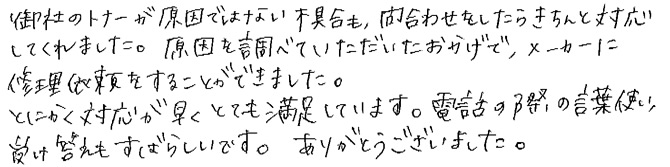 御社のトナーが原因ではない不具合も、問合わせをしたらきちんと対応
してくれました。原因を調べていただいたおかげで、メーカーに
修理依頼をすることができました。
とにかく対応が早くとても満足しています。電話の際の言葉使い、
受け答えもすばらしいです。ありがとうございました。